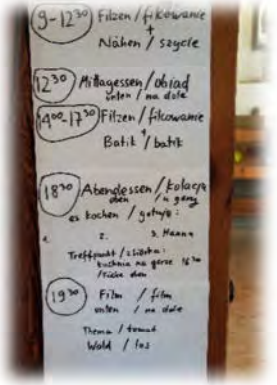 9-12³⁰ Filzen / filcowanie
+
Nähen / szycie
12³⁰ Mittagessen / obiad
unten / na dole
14⁰⁰-17³⁰ Filzen / filcowanie
+
Batik / batik
18³⁰ Abendessen / kolacja
oben / u góry
es kochen / gotuje:
1. 2. 3. Hanna
Treffpunkt / zbiórka:
kuchnia na górze 16³⁰
/ Küche oben
19³⁰ Film / film
unten / na dole
Thema / temat
Wald / las